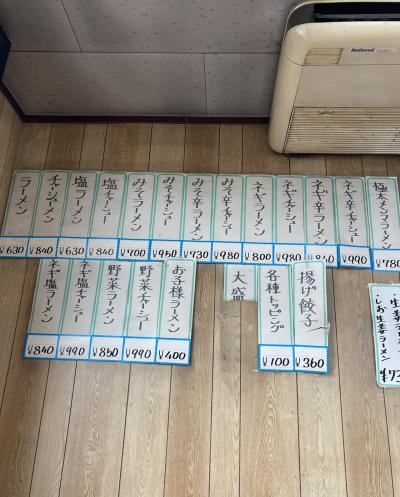 National
ラーメン
¥630
チャーシューメン
¥840
塩ラーメン
¥630
塩チャーシュー
¥840
みそラーメン
¥700
みそチャーシュー
¥960
みそ辛ラーメン
¥730
みそ辛チャーシュー
¥980
ネギラーメン
¥800
ネギチャーシュー
¥980
ネギ辛ラーメン
ネギ辛チャーシュー
¥990
極太メンマラーメン
¥780
ネギ塩ラーメン
¥840
ネギ塩チャーシュー
¥990
野菜ラーメン
¥850
野菜チャーシュー
¥990
お子様ラーメン
¥400
大盛
各種トッピング
¥100
揚げ餃子
¥360
しお生姜ラーメン